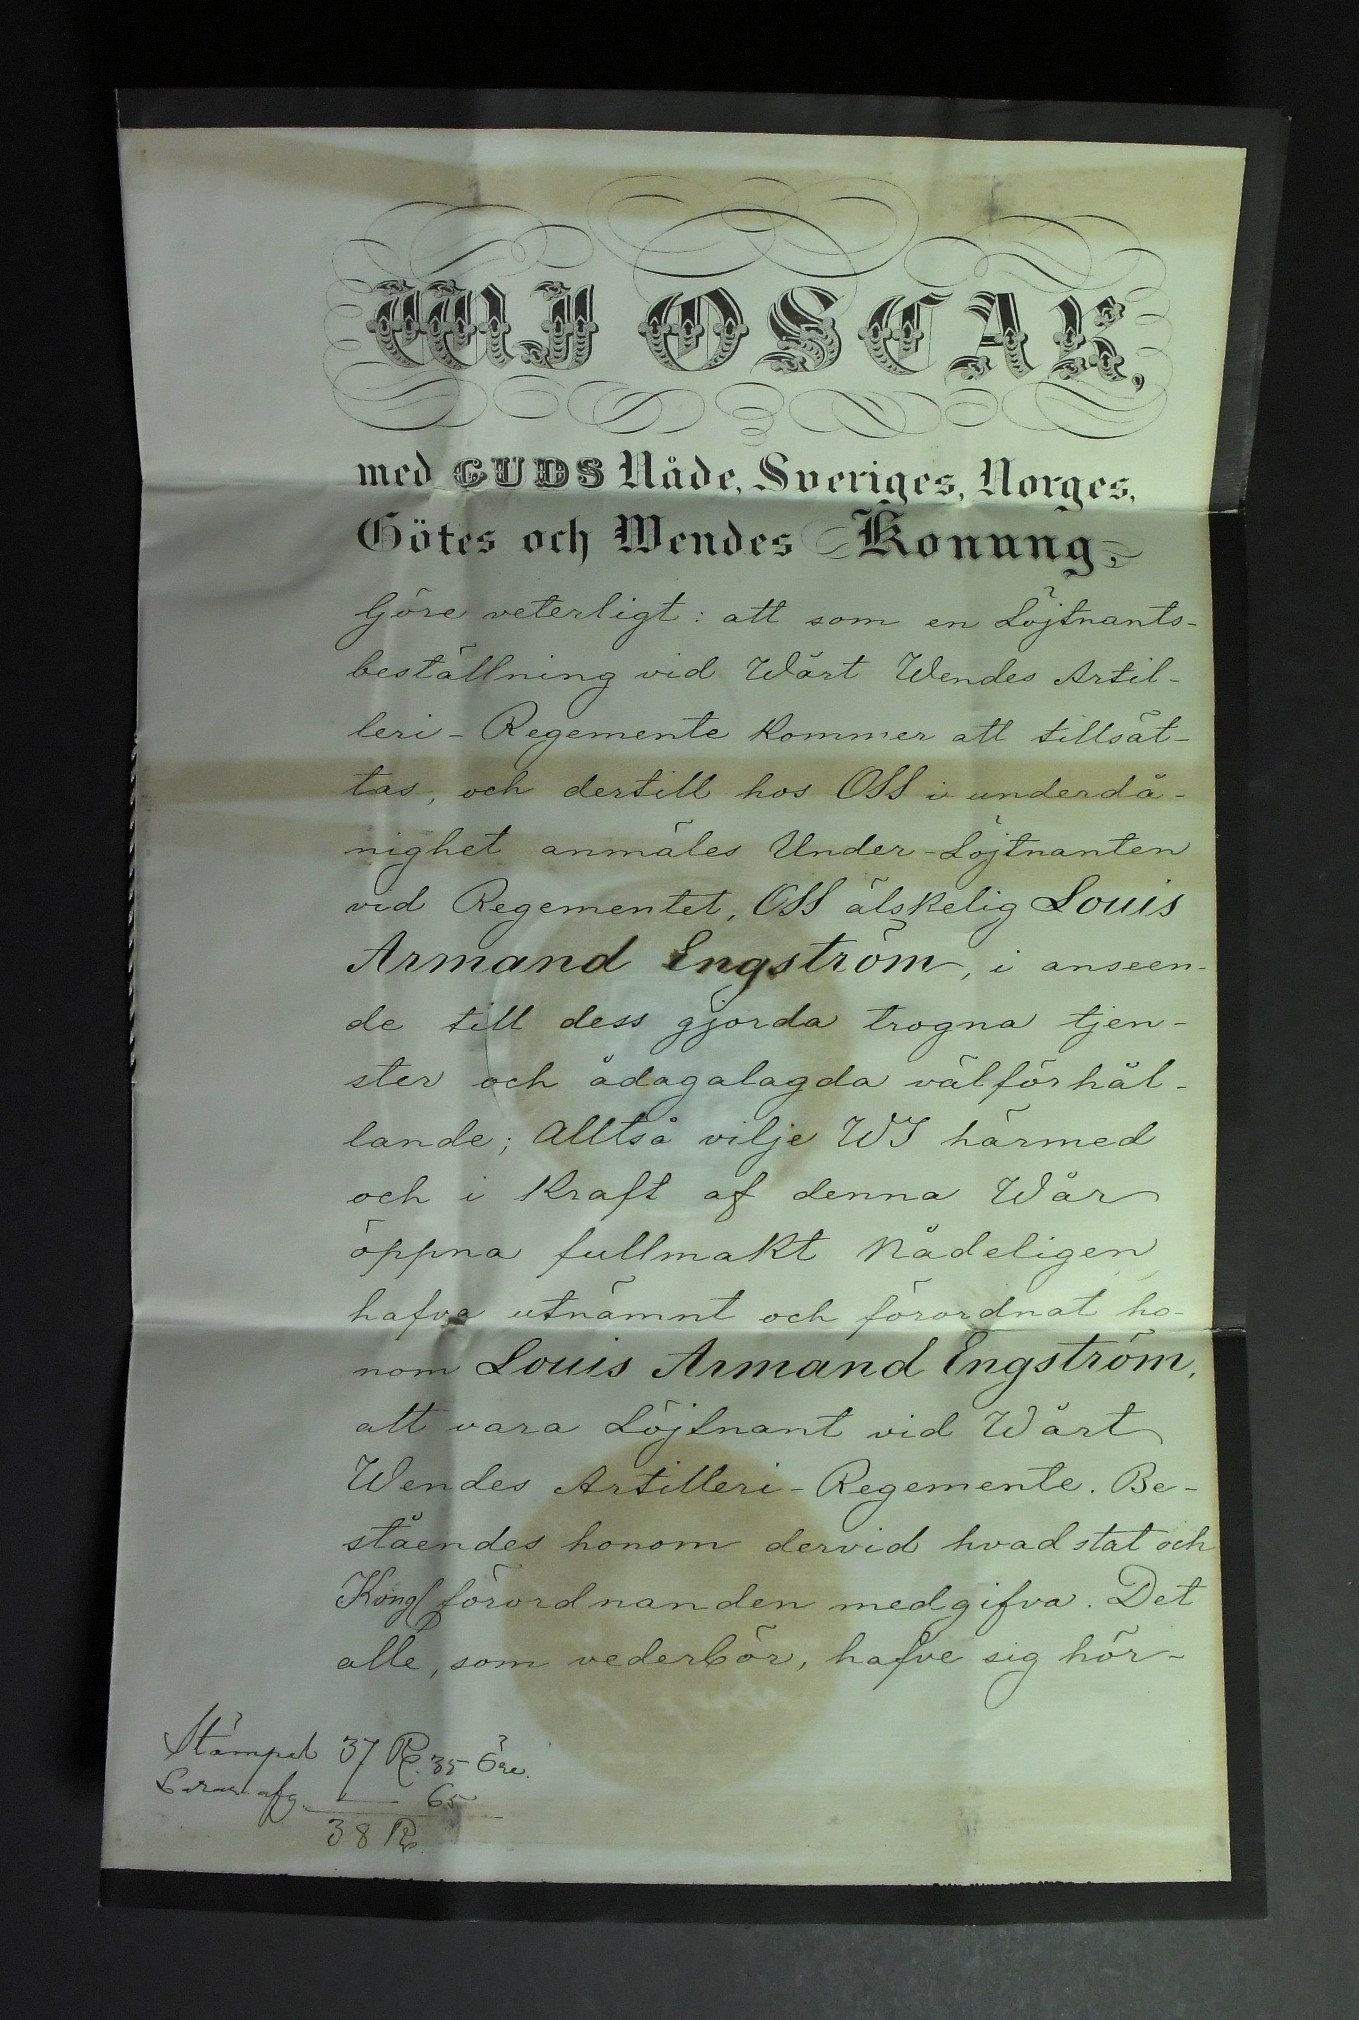 WI OSCAR,
med GUDS Nåde, Sveriges, Norges,
Götes och Wendes Konung,
Göre veterligt: att som en Löjtnants-
beställning vid Wårt Wendes Artil-
leri-Regemente kommer att tillsät-
tas, och dertill hos OSS i underdå-
nighet anmäles Under-Löjtnanten
vid Regementet, OSS älskelig Louis
Armand Engström, i anseen-
de till dess gjorda trogna tjen-
ster och ådagalagda välförhål-
lande; Alltså vilje WI härmed
och i kraft af denna Wår
öppna fullmakt Nådeligen
hafva utnämnt och förordnat ho-
nom Louis Armand Engström,
att vara Löjtnant vid Wårt
Wendes Artilleri-Regemente. Be-
ståendes honom dervid hvad stat och
Kongl förordnanden medgifva. Det
alle, som vederbör, hafve sig hör-
Stämpel 37 R. 35 Öre.
afg. 65
38 R